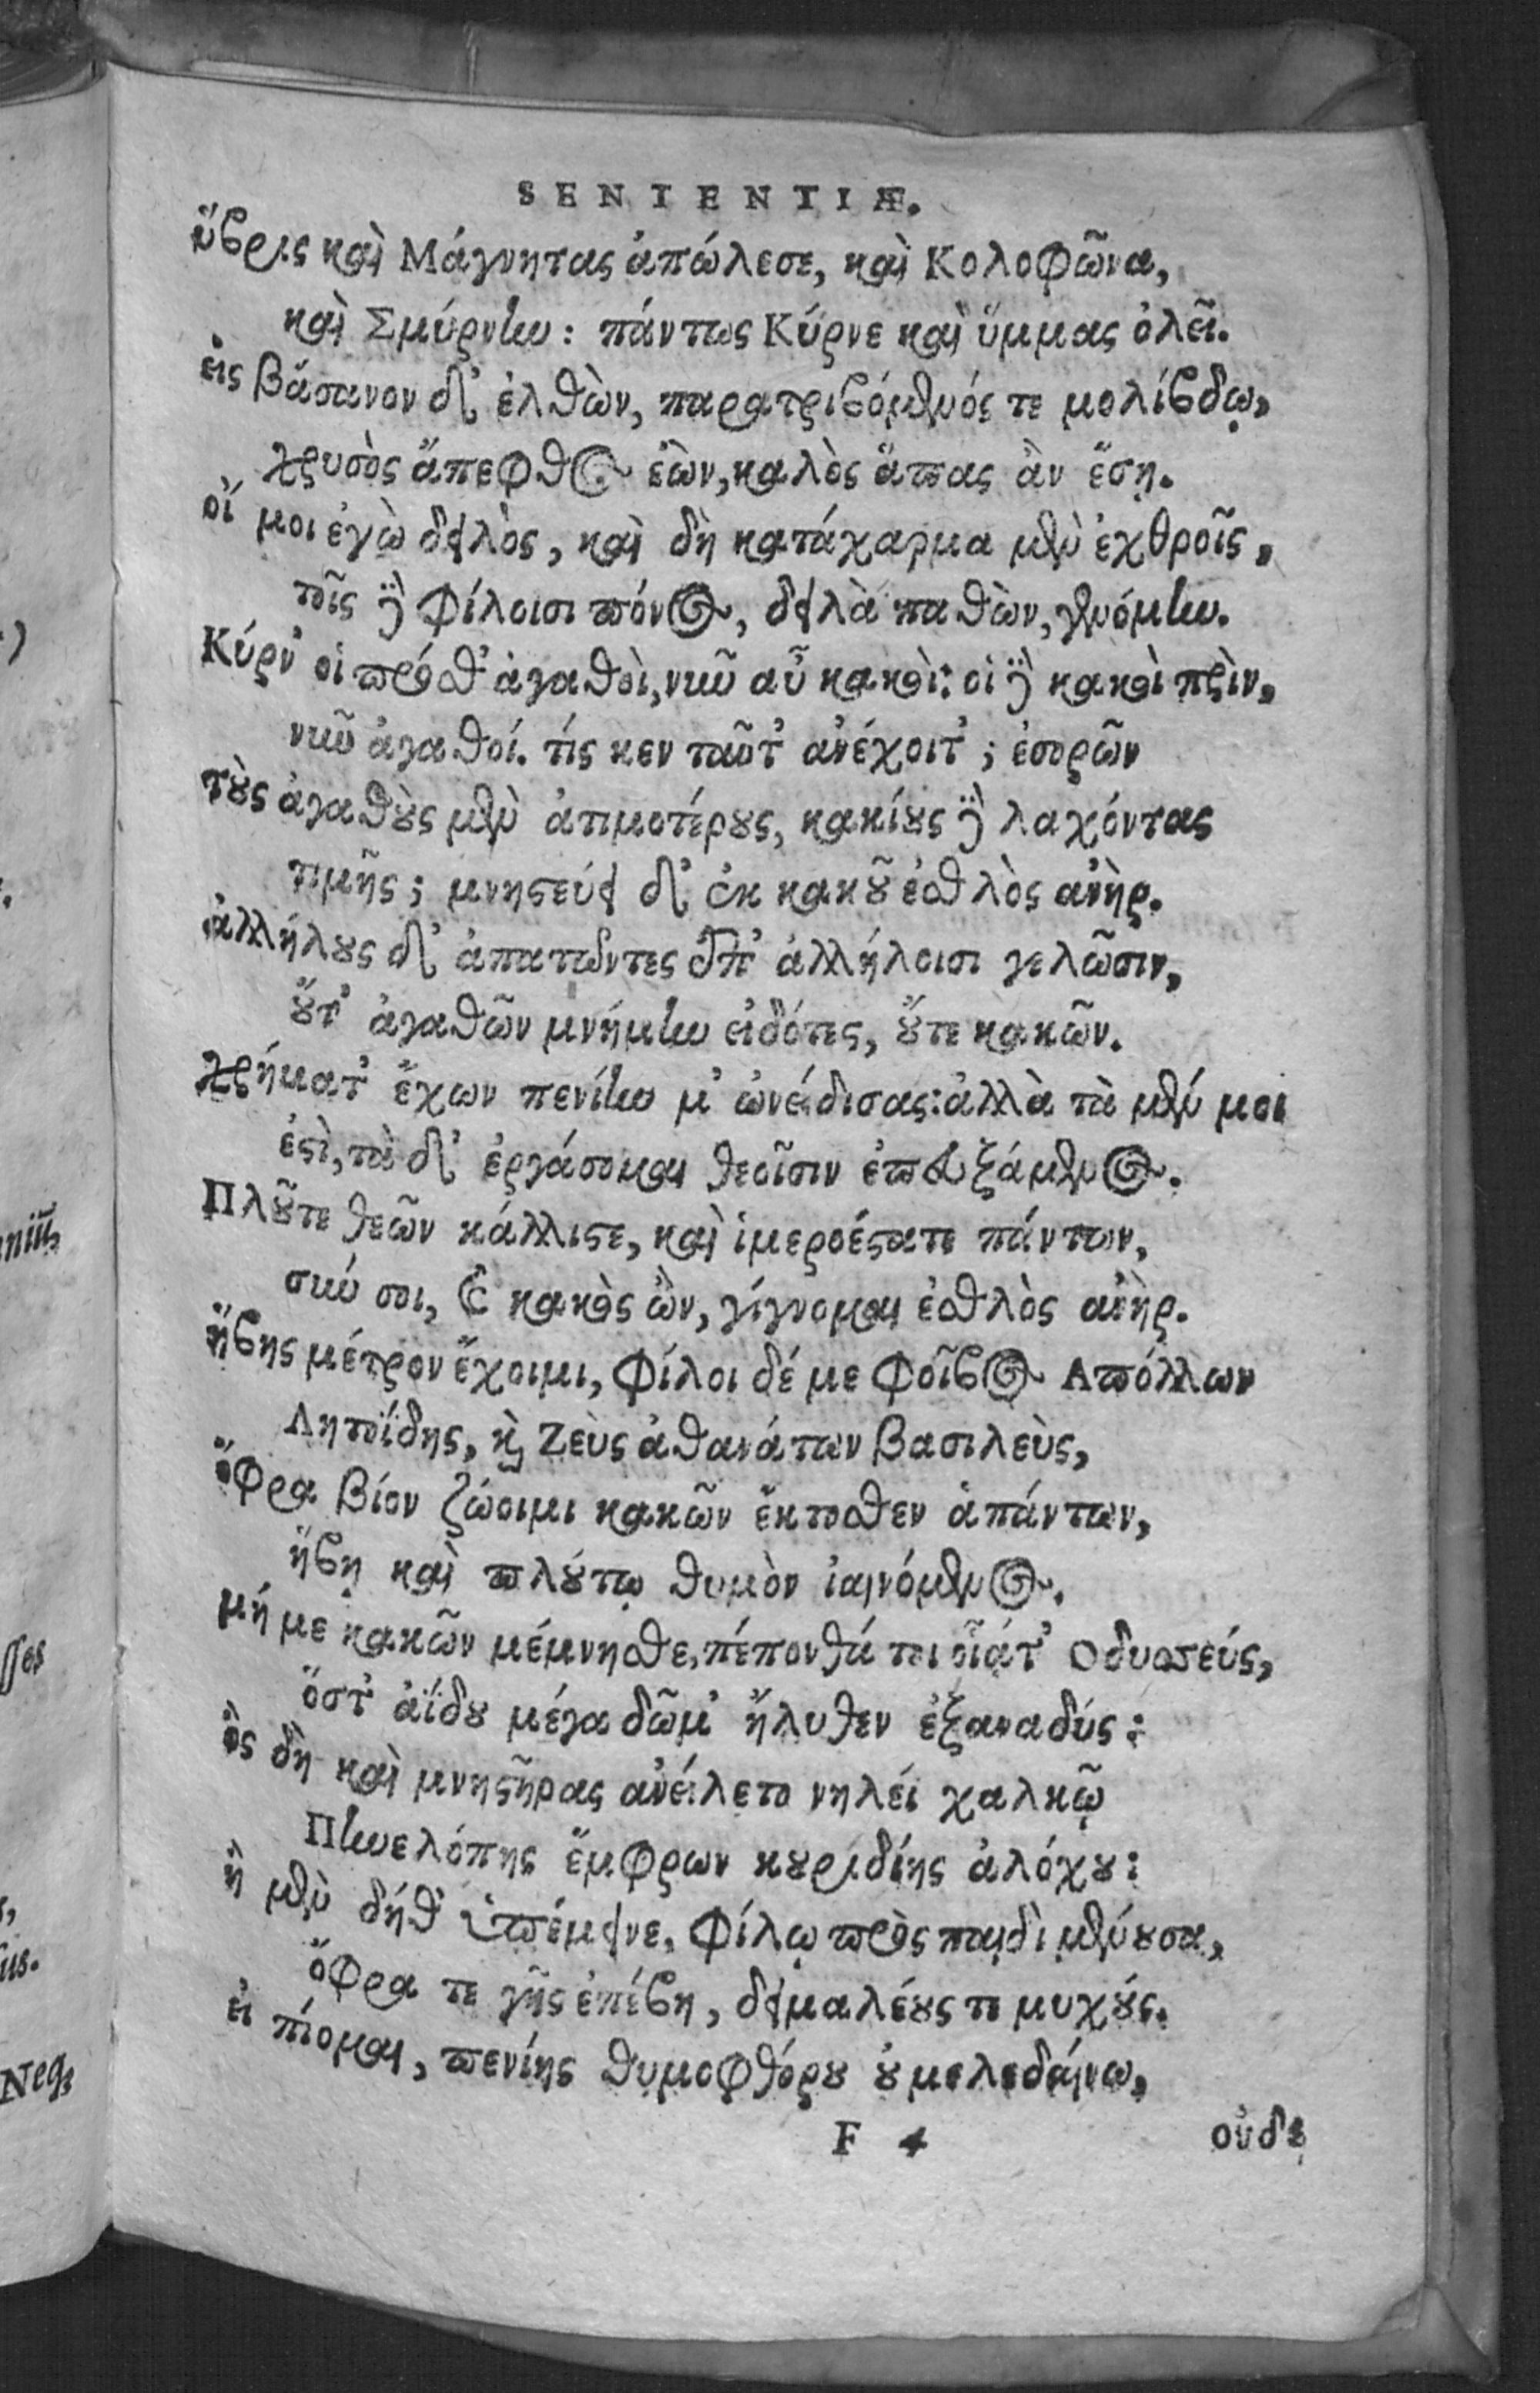 SENTENTIÆ.
ὕβρις καὶ Μάγνητας ἀπώλεσε, καὶ Κολοφῶνα,
καὶ Σμύρνην: πάντως Κύρνε καὶ ὔμμας ὀλεῖ.
εἰς βάσανον δ' ἐλθὼν, παρατριβόμενός τε μολίβδῳ,
χρυσὸς ἄπεφθος ἐὼν, καλὸς ἅπας ἂν ἔσῃ.
οἴ μοι ἐγὼ δειλὸς, καὶ δὴ κατάχαρμα μὲν ἐχθροῖς,
τοῖς δὲ φίλοισι πόνος, δειλὰ παθὼν, γενόμην.
Κύρν' οἱ πρόσθ' ἀγαθοὶ, νῦν αὖ κακοὶ: οἱ δὲ κακοὶ πρὶν,
νῦν ἀγαθοί. τίς κεν ταῦτ' ἀνέχοιτ'; ἐσορῶν
τοὺς ἀγαθοὺς μὲν ἀτιμοτέρους, κακίους δὲ λαχόντας
τιμῆς; μνηστεύει δ' ἐκ κακοῦ ἐσθλὸς ἀνὴρ.
ἀλλήλους δ' ἀπατῶντες ἐπ' ἀλλήλοισι γελῶσιν,
οὔτ' ἀγαθῶν μνήμην εἰδότες, οὔτε κακῶν.
χρήματ' ἔχων πενίην μ' ὠνείδισας: ἀλλὰ τὰ μέν μοι
ἐστὶ, τὰ δ' ἐργάσομαι θεοῖσιν ἐπευξάμενος.
Πλοῦτε θεῶν κάλλιστε, καὶ ἱμεροέστατε πάντων,
σύν σοι, καὶ κακὸς ὢν, γίγνομαι ἐσθλὸς ἀνὴρ.
ἥβης μέτρον ἔχοιμι, φίλοι δέ με Φοῖβος Απόλλων
Λητοΐδης, καὶ Ζεὺς ἀθανάτων βασιλεὺς,
ὄφρα βίον ζώοιμι κακῶν ἔκτοσθεν ἁπάντων,
ἥβῃ καὶ πλούτῳ θυμὸν ἰαινόμενος.
μή με κακῶν μέμνησθε, πέπονθά τοι οἷάτ' Οδυσσεύς,
ὅστ' ἀΐδου μέγα δῶμ' ἤλυθεν ἐξαναδύς:
ὃς δὴ καὶ μνηστῆρας ἀνείλετο νηλέϊ χαλκῷ
Πηνελόπης ἔμφρων κουριδίης ἀλόχου:
ἣ μὲν δήθ' ὑπέμεινε, φίλῳ πρὸς παιδὶ μένουσα,
ὄφρα τε γῆς ἐπέβη, δειμαλέους τε μυχούς.
εἰ πίομαι, πενίης θυμοφθόρου οὐ μελεδαίνω,
F 4 οὐδὲ